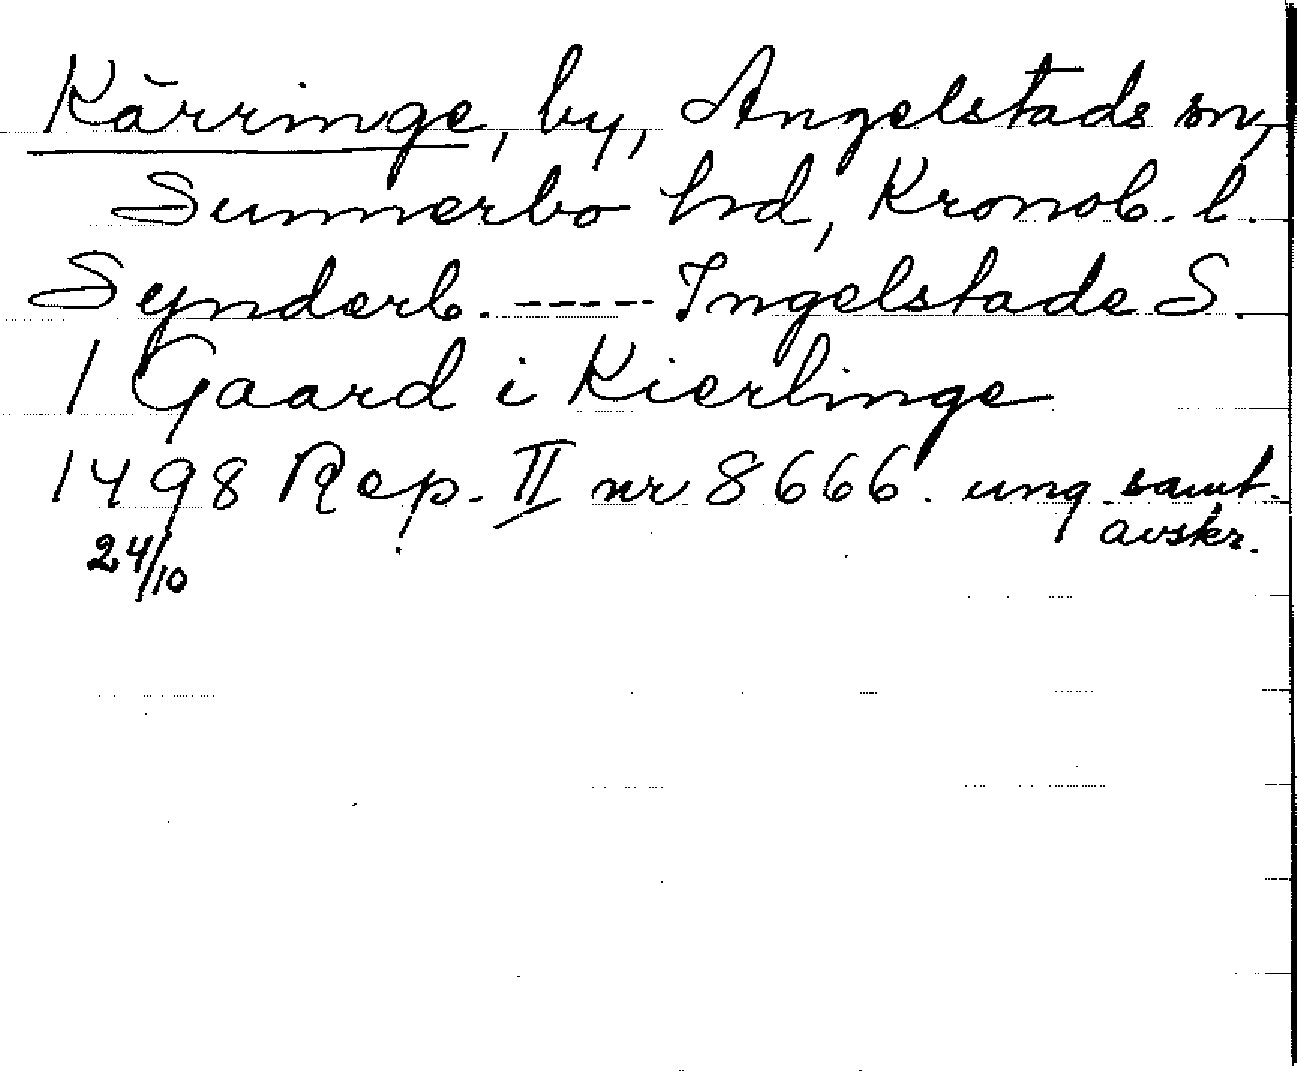 Kärringe, by, Angelstads sn,
Sunnerbo hd, Kronob. l.
Synderb. ----- Ingelstade S.
1 Gaard i Kierlinge
1498 Rep. II nr 8666. ung samt.
avskr.
24/10